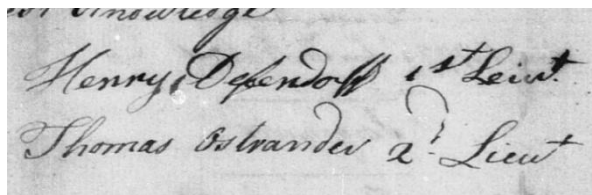 Knowledge
Henry Defendorff 1st Leiut.
Thomas Ostrander 2d. Lieut